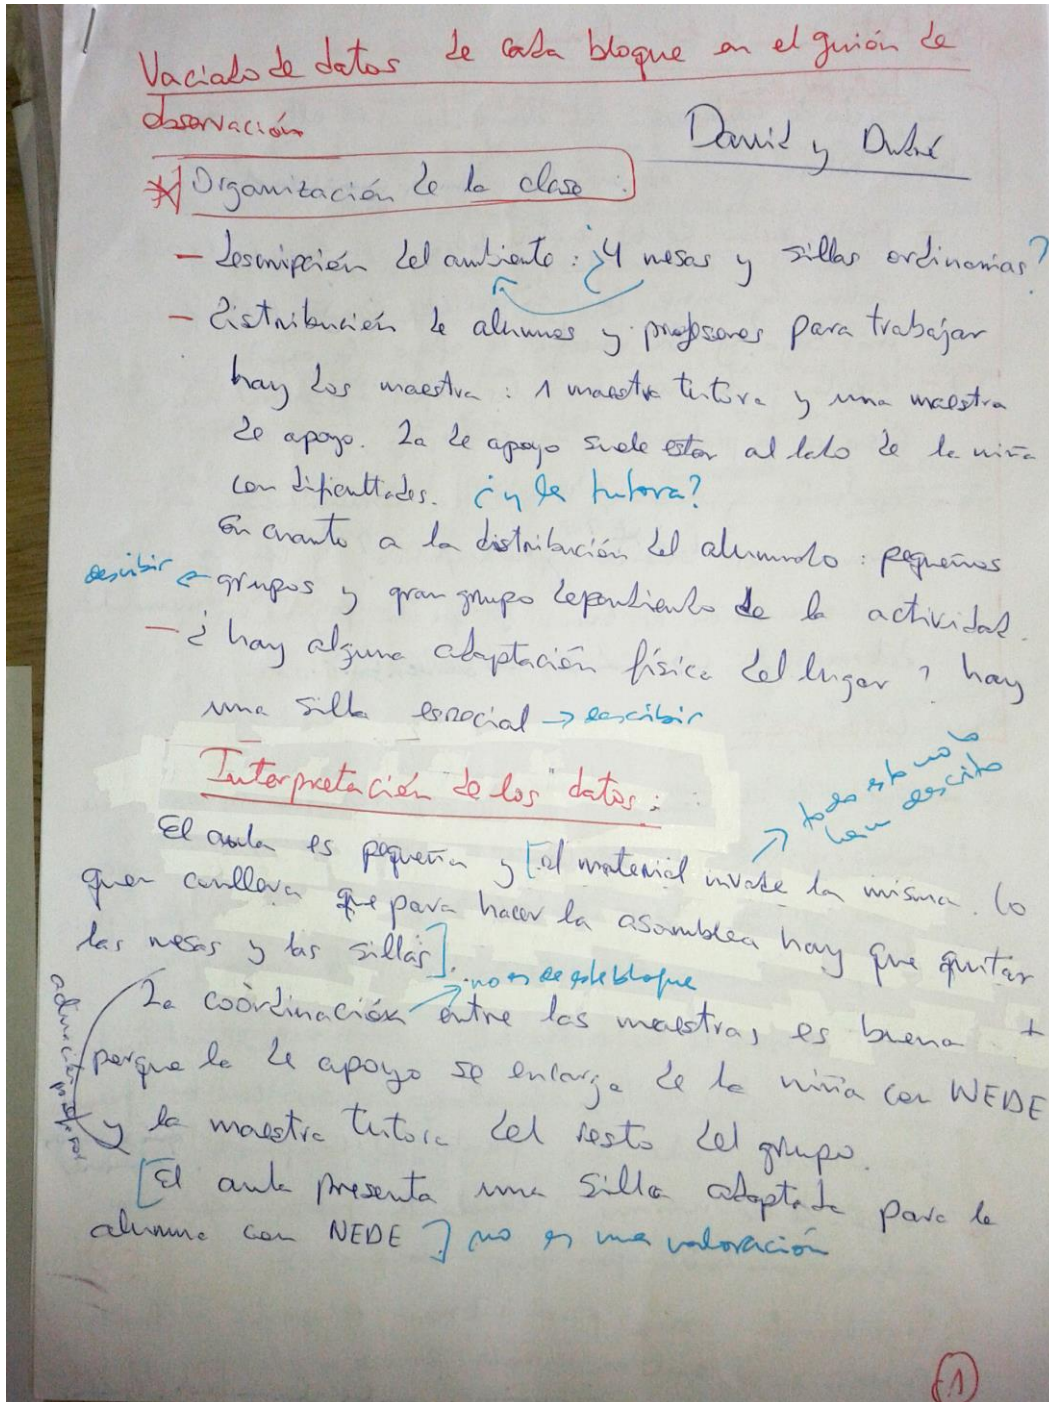 Vaciado de datos de cada bloque en el guión de
observación
David y Dudú
* Organización de la clase :
- descripción del ambiente : ¿4 mesas y sillas ordinarias?
- distribución de alumnos y profesores para trabajar
hay dos maestra : 1 maestra tutora y una maestra
de apoyo. La de apoyo suele estar al lado de la niña
con dificultades. ¿y la tutora?
En cuanto a la distribución del alumnado : pequeños
describir ← grupos y gran grupo dependiendo de la actividad.
- ¿ hay alguna adaptación física del lugar ? hay
una silla especial → describir
Interpretación de los datos :
todo esto no lo
han descrito
El aula es pequeña y [el material invade la misma. Lo
que conlleva que para hacer la asamblea hay que quitar
las mesas y las sillas].
no es de este bloque
La coordinación entre las maestras es buena +
porque la de apoyo se encarga de la niña con NEDE
y la maestra tutora del resto del grupo.
[El aula presenta una silla adaptada para la
alumna con NEDE] no es una valoración
1